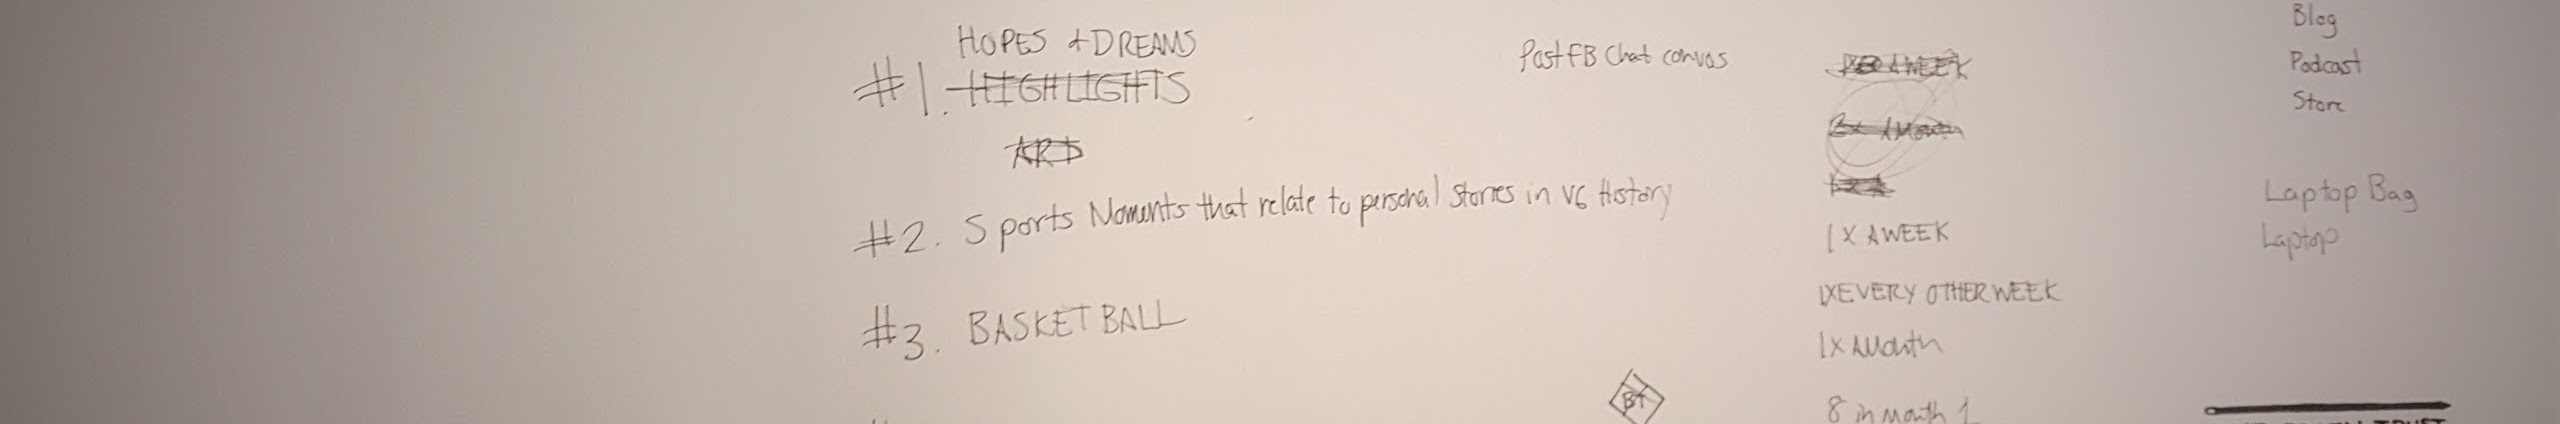 HOPES + DREAMS
#1. HIGHLIGHTS
#2. Sports Moments that relate to personal stories in VG History
#3. BASKETBALL
Past FB Chat convos
1 X A WEEK
1X EVERY OTHER WEEK
1X A Month
8 in Month 1
Blog
Podcast
Store
Laptop Bag
Laptop